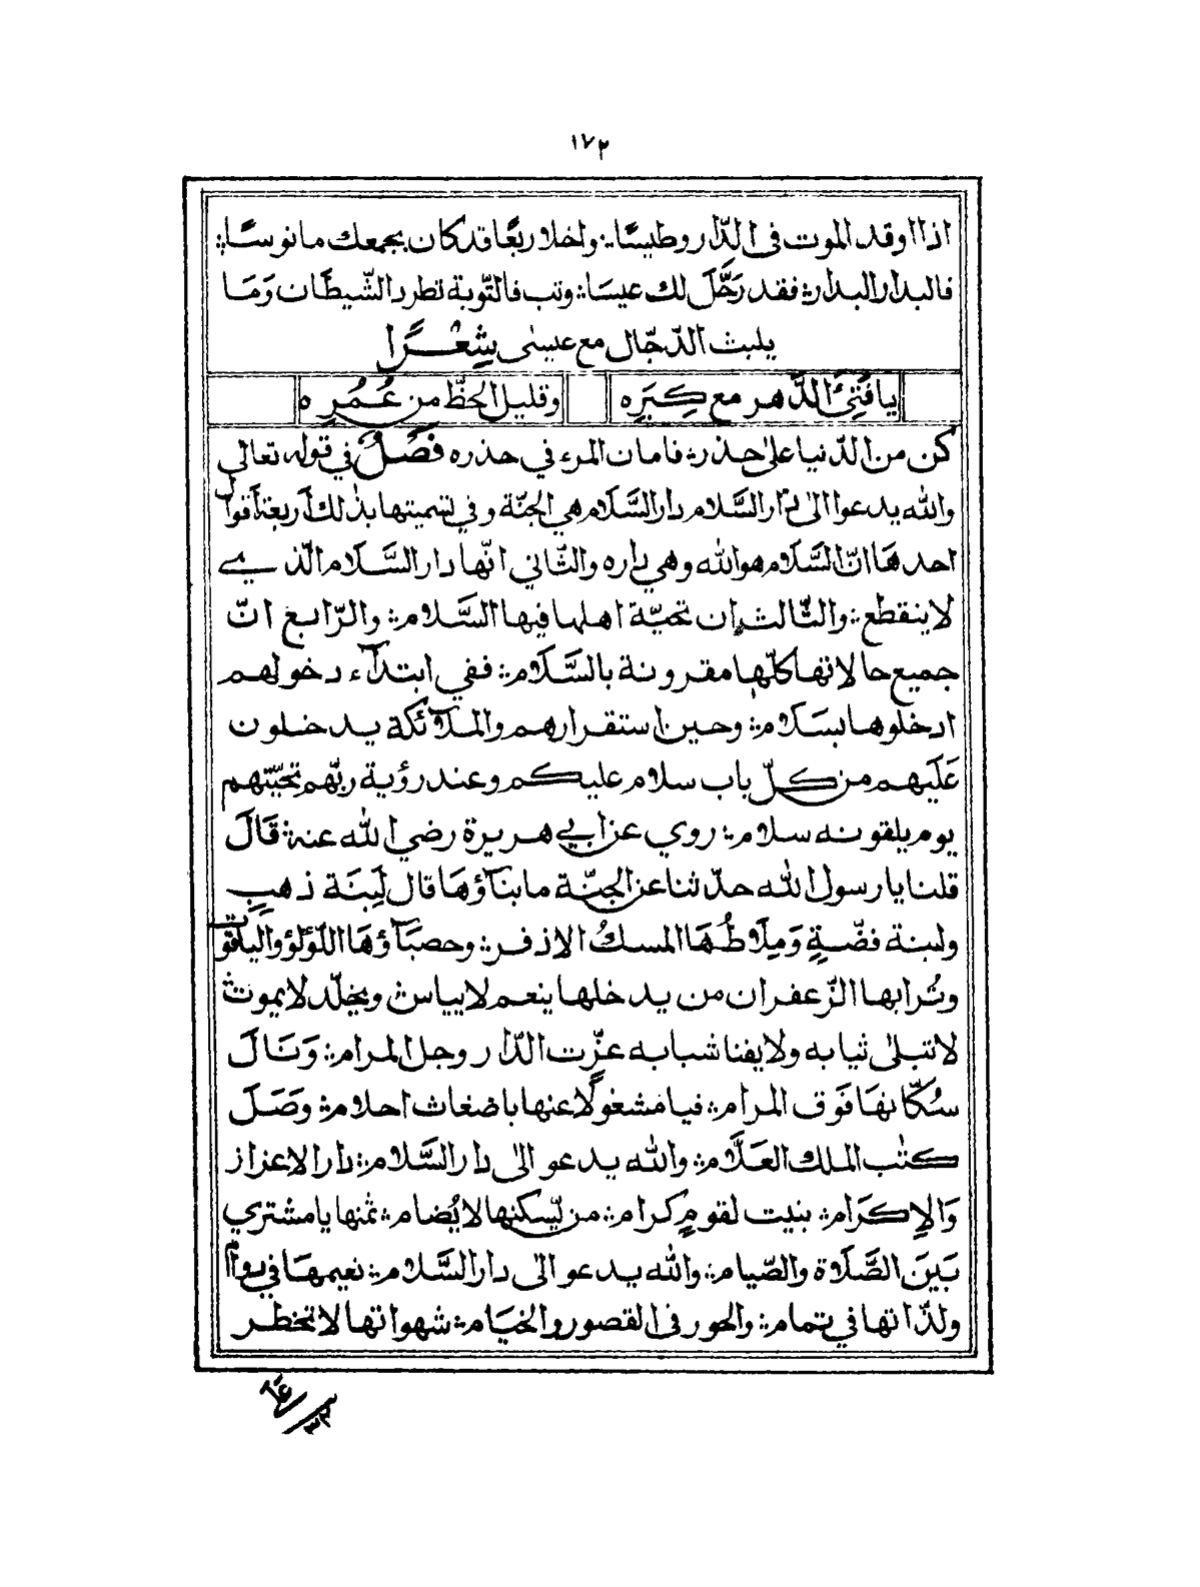 ١٧٢
اذا اوقد الموت في الدّار وطيسًا؞ واخلا ربعًا قد كان بجمعك مانوسًا؞
فالبدار البدار؞ فقد رَحَّلَ لك عيسَا؞ وتب فالتّوبة تطرد الشّيطَان وَمَا
يلبث الدّجّال مع عيسٰى شِعْرًا
يا فَتِيَّ الدَّهر مع كِبَرِه ه وقليل الحظّ من عُمُرِه ه
كن من الدّنيا علٰى حذر؞ فامان المرء في حذره فَصْلٌ في قوله تعالى
والله يدعوا الىٰ دار السَّلام دار السَّلَام هي الجنّة وفي تسميتها بذٰلك أربعة أقوال
احدهَا انّ السَّلَام هو الله وهي داره والثّاني انّها دار السَّلَام الّذي
لا ينقطع؞ والثّالث ان تحيّة اهلها فيها السَّلام؞ والرّابع انّ
جميع حالاتها كلّها مقرونة بالسَّلَام؞ ففي ابتدآء دخولهم
ادخلوها بسَلَام؞ وحين استقرارهم والملآئكة يدخلون
عَلَيهم من كلّ باب سلام عليكم وعند رؤية ربّهم تحيّتهم
يوم يلقونه سلام؞ روي عن ابي هريرة رضي الله عنه؞ قَالَ
قلنا يا رسول الله حدّثنا عن الجنّة ما بنآؤهَا قال لَبِنَة ذهبٍ
ولبنة فضّةٍ وَمِلَاطُهَا المسكُ الاذفر؞ وحصبَآؤهَا اللّؤلؤ والياقوت
وتُرابها الزّعفران من يدخلها ينعم لا يباس؞ ويخلّد لا يموت؞
لا تبلٰى ثيابه ولا يفنا شبابه عزّت الدّار وجل المرام؞ وَنَالَ
سُكّانهَا فَوق المرام؞ فيا مشغولًا عنها باضغاث احلام؞ وصَلَ
كتٰب الملك العَلَّام؞ والله يدعو الىٰ دار السَّلام؞ دار الاعزاز
وَالاِكرَام؞ بنيت لقومٍ كرام؞ من يّسكنها لا يُضام؞ ثمنها يا مشتري
بَينَ الصَّلَاة والصّيام؞ والله يدعو الىٰ دار السَّلام؞ نعيمهَا في دوام
ولذّاتها في تمام؞ والحور في القصور والخيَام؞ شهواتها لا تخطر